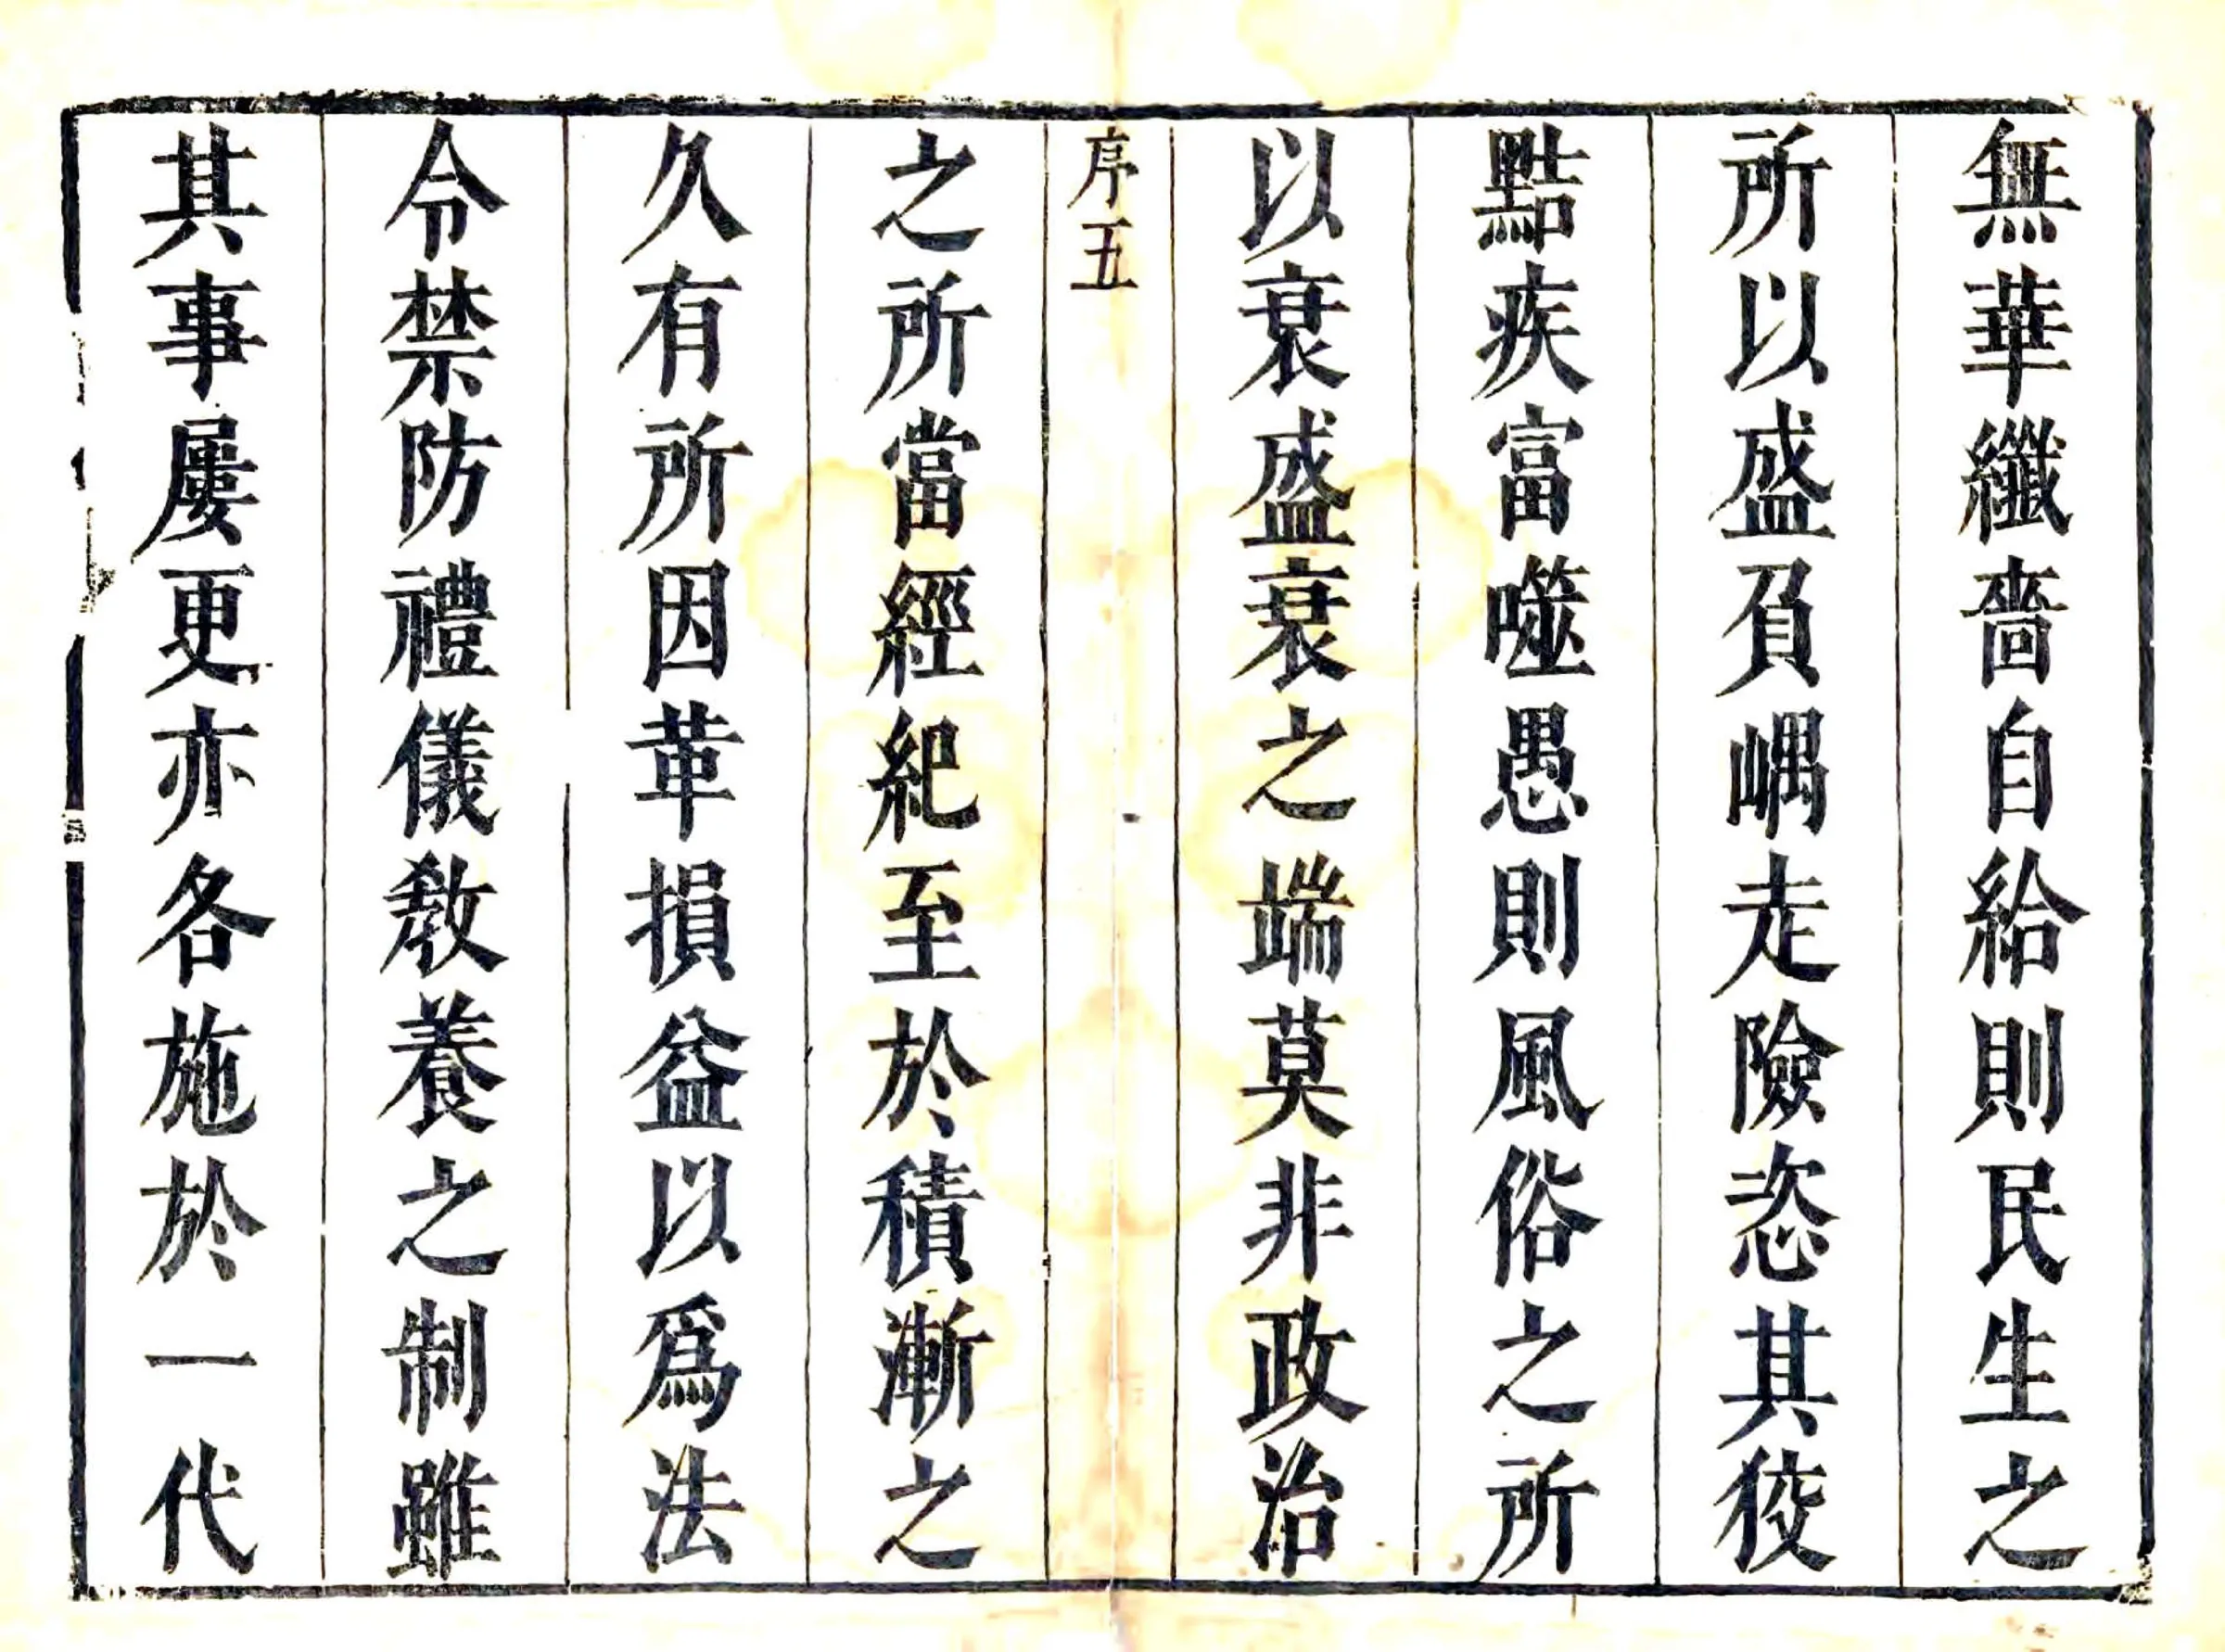 無華纖嗇自給則民生之
所以盛負嵎走險恣其狡
黠疾富噬愚則風俗之所
以衰盛衰之端莫非政治
序五
之所當經紀至於積漸之
久有所因革損益以爲法
令禁防禮儀敎養之制雖
其事屢更亦各施於一代